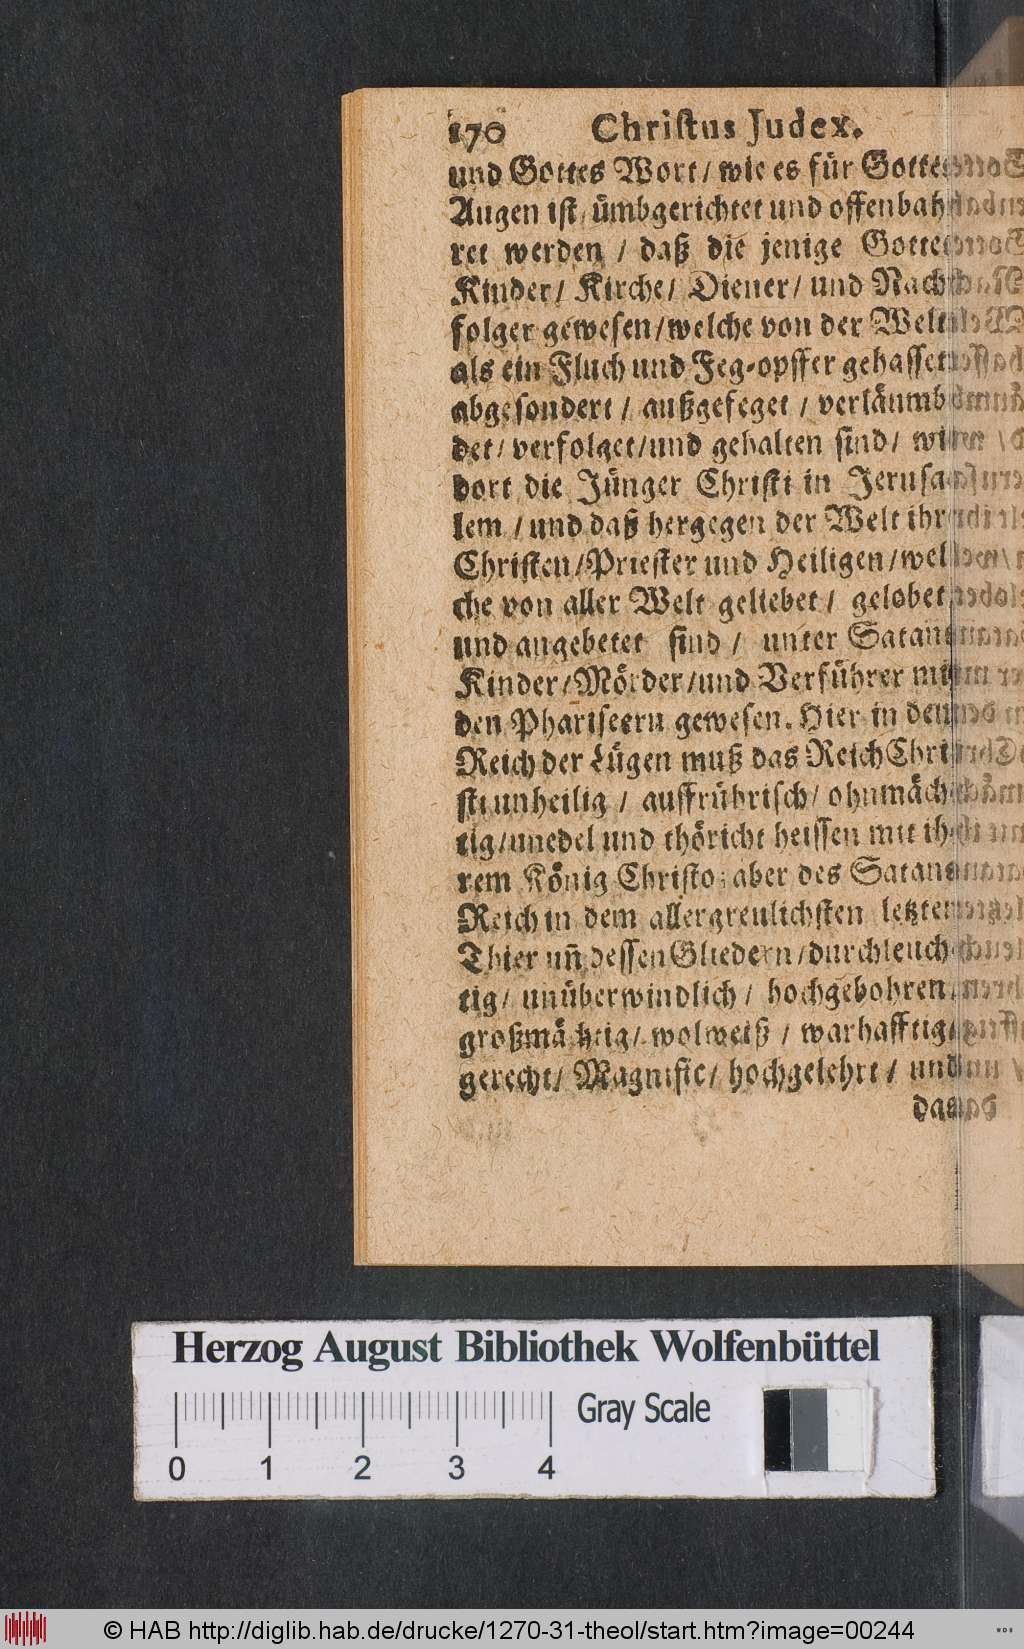 170 Christus Judex.
und Gottes Wort / wie es für Gottes
Augen ist / ümbgerichtet und offenbah-
ret werden / daß die jenige Gottes
Kinder / Kirche / Diener / und Nach-
folger gewesen / welche von der Welt
als ein Fluch und Feg-opffer gehasset
abgesondert / außgefeget / verläumb-
det / verfolget / und gehalten sind / wie
dort die Jünger Christi in Jerusa-
lem / und daß hergegen der Welt ihre
Christen / Priester und Heiligen / wel-
che von aller Welt geliebet / gelobet
und angebetet sind / unter Satans
Kinder / Mörder / und Verführer mit
den Phariseern gewesen. Hier in dem
Reich der Lügen muß das Reich Chri-
sti unheilig / auffrührisch / ohnmäch-
tig / unedel und thöricht heissen mit ih-
rem König Christo; aber des Satans
Reich in dem allergreulichsten letzten
Thier uñ dessen Gliedern / durchleuch-
tig / unüberwindlich / hochgebohren,
großmächtig / wolweiß / warhafftig /
gerecht / Magnific / hochgelehrt / und
das
Herzog August Bibliothek Wolfenbüttel
Gray Scale
0 1 2 3 4
© HAB http://diglib.hab.de/drucke/1270-31-theol/start.htm?image=00244